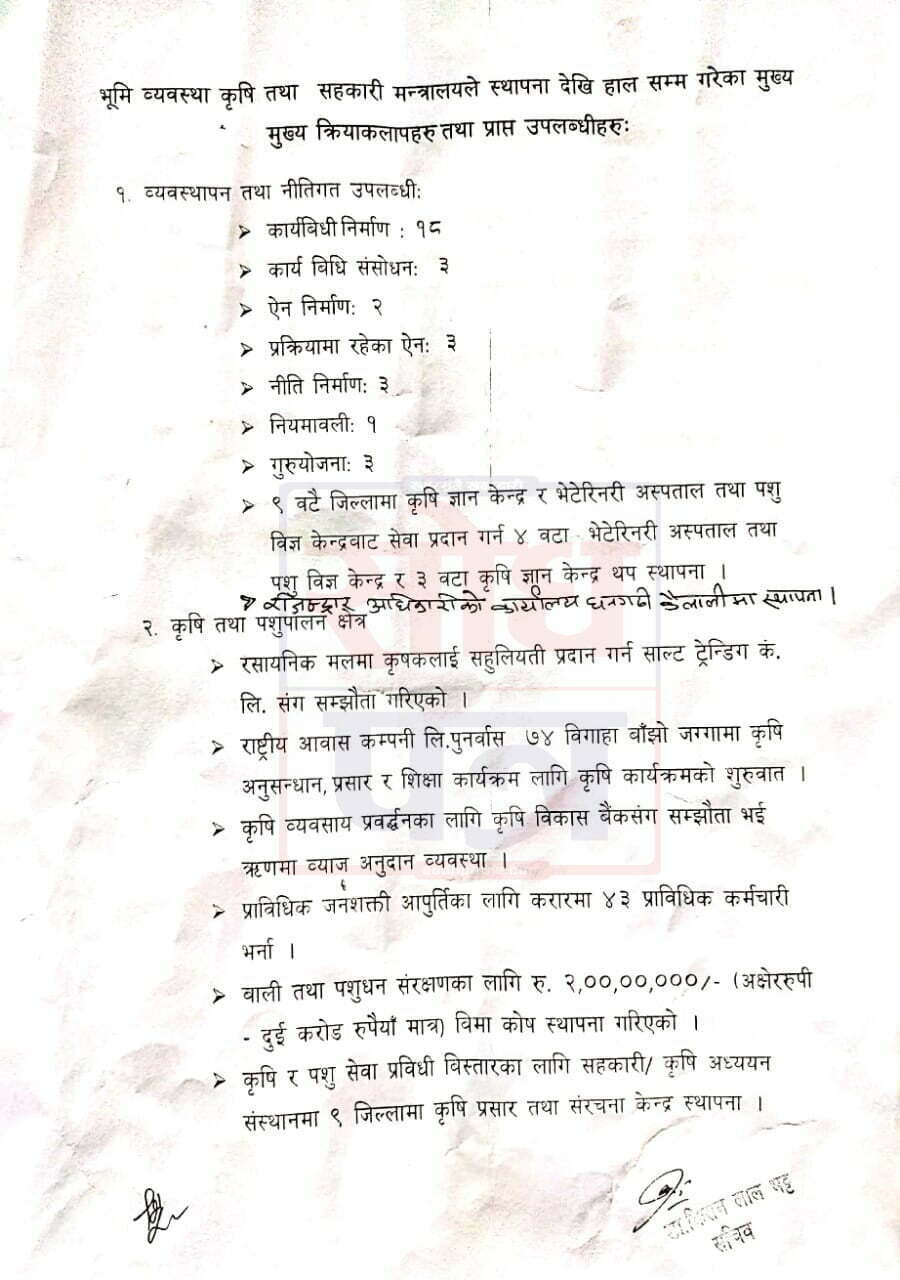 भूमि व्यवस्था कृषि तथा सहकारी मन्त्रालयले स्थापना देखि हाल सम्म गरेका मुख्य
मुख्य क्रियाकलापहरु तथा प्राप्त उपलब्धीहरुः
१. व्यवस्थापन तथा नीतिगत उपलब्धी:
➢ कार्यबिधी निर्माण : १८
➢ कार्य बिधि संसोधन: ३
➢ ऐन निर्माण: २
➢ प्रक्रियामा रहेका ऐन: ३
➢ नीति निर्माण: ३
➢ नियमावली: १
➢ गुरुयोजना: ३
➢ ९ वटै जिल्लामा कृषि ज्ञान केन्द्र र भेटेरिनरी अस्पताल तथा पशु
विज्ञ केन्द्रवाट सेवा प्रदान गर्न ४ वटा भेटेरिनरी अस्पताल तथा
पशु विज्ञ केन्द्र र ३ वटा कृषि ज्ञान केन्द्र थप स्थापना ।
➢ रजिष्ट्रार अधिकारीको कार्यालय धनगढी कैलालीमा स्थापना ।
२. कृषि तथा पशुपालन क्षेत्र
➢ रसायनिक मलमा कृषकलाई सहुलियती प्रदान गर्न साल्ट ट्रेन्डिग कं.
लि. संग सम्झौता गरिएको ।
➢ राष्ट्रीय आवास कम्पनी लि.पुनर्वास ७४ विगाहा बाँझो जग्गामा कृषि
अनुसन्धान, प्रसार र शिक्षा कार्यक्रम लागि कृषि कार्यक्रमको शुरुवात ।
➢ कृषि व्यवसाय प्रवर्द्धनका लागि कृषि विकास बैंकसंग सम्झौता भई
ऋणमा व्याज अनुदान व्यवस्था ।
➢ प्राविधिक जनशक्ती आपुर्तिका लागि करारमा ४३ प्राविधिक कर्मचारी
भर्ना ।
➢ वाली तथा पशुधन संरक्षणका लागि रु. २,००,००,०००/- (अक्षेरुपी
- दुई करोड रुपैयाँ मात्र) विमा कोष स्थापना गरिएको ।
➢ कृषि र पशु सेवा प्रविधी विस्तारका लागि सहकारी/ कृषि अध्ययन
संस्थानमा ९ जिल्लामा कृषि प्रसार तथा संरचना केन्द्र स्थापना ।
लाल भट्ट
सचिव
शोध
पत्र